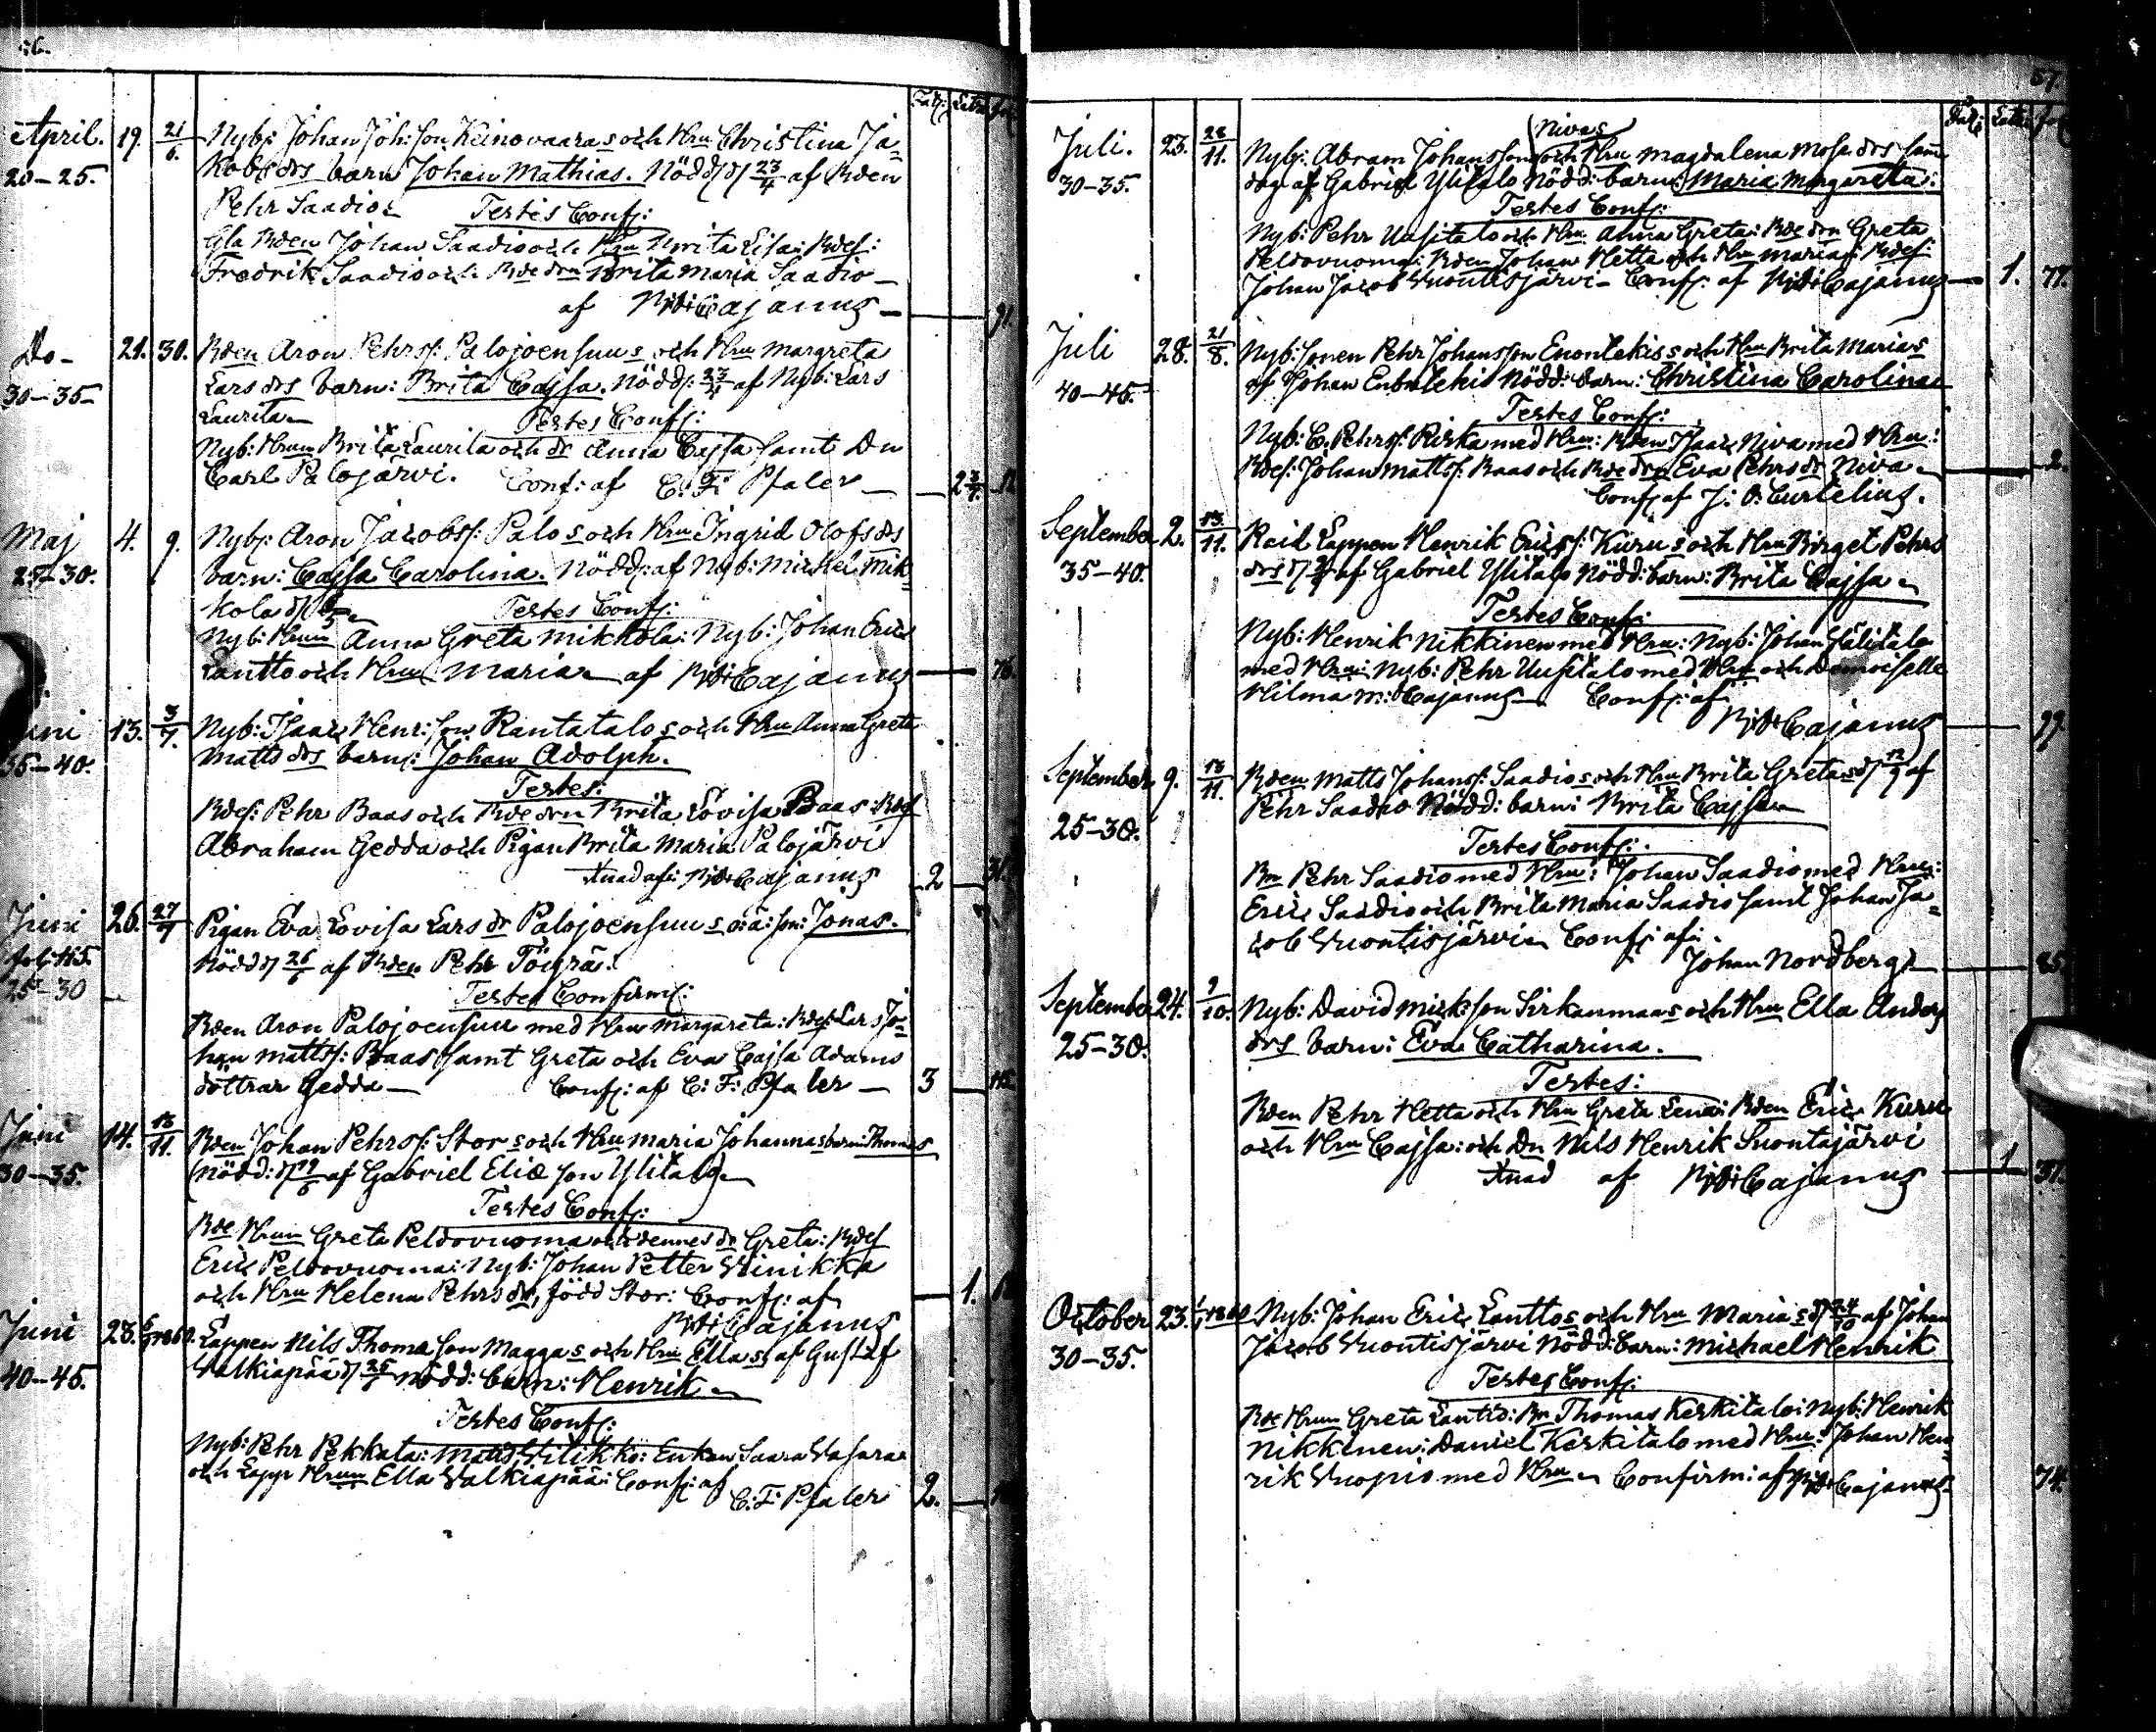 56.
Tab: Littr. fol.
April. 19. 21/6. Nyb: Johan Joh:son Keinovaara s och Hru Christina Ja=
20–25. kobs drs barn Johan Mathias. Nödd: d 23/4 af Bden
Pehr Saadio
Testes Conf:
Gla Bden Johan Saadio och Hru Brita Lisa: Bdes:
Fredrik Saadio och Bde drn Brita Maria Saadio
af Cajanus 91.
Do 21. 30. Bden Aron Pehrs: Palojoensuu s och Hru Margreta
30–35 Lars drs barn: Brita Cajsa. Nödd: 23/4 af Nyb: Lars
Laurila
Testes Conf:
Nyb: Hrun Brita Laurila och dr Anna Cajsa samt Dn
Carl Palojärvi. Conf: af C: F: Pfaler
Maj 4. 9. Nyb: Aron Jacobs: Palo s och Hru Ingrid Olofs drs
25–30. barn: Cajsa Carolina. Nödd: af Nyb: Michel Mik
kola d
Testes Conf:
Nyb: Hrun Anna Greta Mikkola: Nyb: Johan Eric
Lantto och Hru Maria af Cajanus 76.
Juni 13. 3/7. Nyb: Isaac Henr: son Rantatalo s och Hru Anna Greta
35–40. Matts drs barn: Johan Adolph.
Testes:
Bdes: Pehr Baas och Bde drn Brita Lovisa Baas: Bdes
Abraham Gedda och Pigan Brita Maria Palojärvi
af Cajanus 2 31.
Juni 26. 27/7 Pigan Eva Lovisa Lars dr Palojoensuu s o: ä: son: Jonas.
fol: 115. Nödd d 26/6 af Bden Pehr Töigräs.
25–30
Testes Confirm:
Bden Aron Palojoensuu med Hru Margareta: Bdes: Lars Jo=
han Matts: Baas samt Greta och Eva Cajsa Adams
döttrar Gedda Conf: af C: F: Pfaler 3
Juni 14. 13/11. Bden Johan Pehrs: Stor s och Hru Maria Johanna s barn: Thomas
30–35. Nödd: d 19/6 af Gabriel Elie son Ylitalo
Testes Conf:
Bde Hrun Greta Peldovuoma och dennes dr Greta: Bdes
Eric Peldovuoma: Nyb: Johan Petter Vinikka
och Hru Helena Pehrs dr, född Stor: Conf: af 1.
Cajanus
Juni 23. 1860. Lappen Nils Thoma son Magga s och Hru Ella s af Gustaf
40–45. Valkiapää d 25/6 nödd: barn: Henrik
Testes Conf:
Nyb: Pehr Pekkala: Matts Vilikko: Enkan Saara Vasara
och Lapp Hrun Ella Valkiapää: Conf: af
C: F: Pfaler 2.
57.
Tab: Littr. fol.
Juli. 23. 28/11. Nyb: Abram Johansson Nivas och Hru Magdalena Mose drs sam
30–35. dag af Gabriel Ylitalo Nödd: barn: Maria Margareta:
Testes Conf:
Nyb: Pehr Uusitalo och Hru Anna Greta: Bde drn Greta
Peldovuoma: Bden Johan Hetta och Hru Maria: Bdes:
Johan Jacob Vuontisjärvi Conf: af Cajanus 1. 77.
Juli 28. 21/8. Nyb: sonen Pehr Johansson Enontekis s och Hru Brita Maria s
40–45. af Johan Enontekis Nödd: barn: Christina Carolina
Testes Conf:
Nyb: C. Pehrs: Kirka med Hru: Bden Isaac Niva med Hru:
Bdes: Johan Matts: Baas och Bde drn Eva Pehrs dr Niva 2.
Conf: af J: O: Curtelius.
September 2. 13/11. Raid Lappen Henrik Erics: Kuru s och Hru Birget Pehrs
35–40. drs d af Gabriel Ylitalo Nödd: barn: Brita Cajsa
Testes Conf:
Nyb: Henrik Nikkinen med Hru: Nyb: Johan Fälitalo
med Hru: Nyb: Pehr Uusitalo med Hru och Demoiselle
Hilma M: Cajanus Conf: af
Cajanus 99.
September 9. 13/11. Bden Matts Johans: Saadio s och Hru Brita Greta s d 12/9 af
25–30. Pehr Saadio Nödd: barn: Brita Cajsa
Testes Conf:
Bn Pehr Saadio med Hru: Johan Saadio med Hru:
Eric Saadio och Brita Maria Saadio samt Johan Ja=
cob Vuontisjärvi Conf: af:
Johan Nordberg 85.
September 24. 9/10. Nyb: David Mick: son Sirkanmaa s och Hru Ella Anders
25–30. drs barn: Eva Catharina.
Testes:
Bden Pehr Hetta och Hru Greta Lena: Bden Eric Kuru
och Hru Cajsa: och Dn Nils Henrik Suontajärvi
af Cajanus 1 37.
October 23. 1860. Nyb: Johan Eric Lantto s och Hru Maria s d 24/10 af Johan
30–35. Jacob Vuontisjärvi Nödd: barn: Michael Henrik
Testes Conf:
Bde Hrun Greta Lantto: Bn Thomas Keskitalo: Nyb: Henrik
Nikkinen: Daniel Keskitalo med Hru: Johan Hen=
rik Vuopio med Hru Confirm: af Cajanus 74.